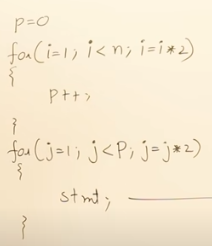 p=0
for(i=1; i<n; i=i*2)
{
p++;
}
for(j=1; j<P; j=j*2)
{
stmt;
}